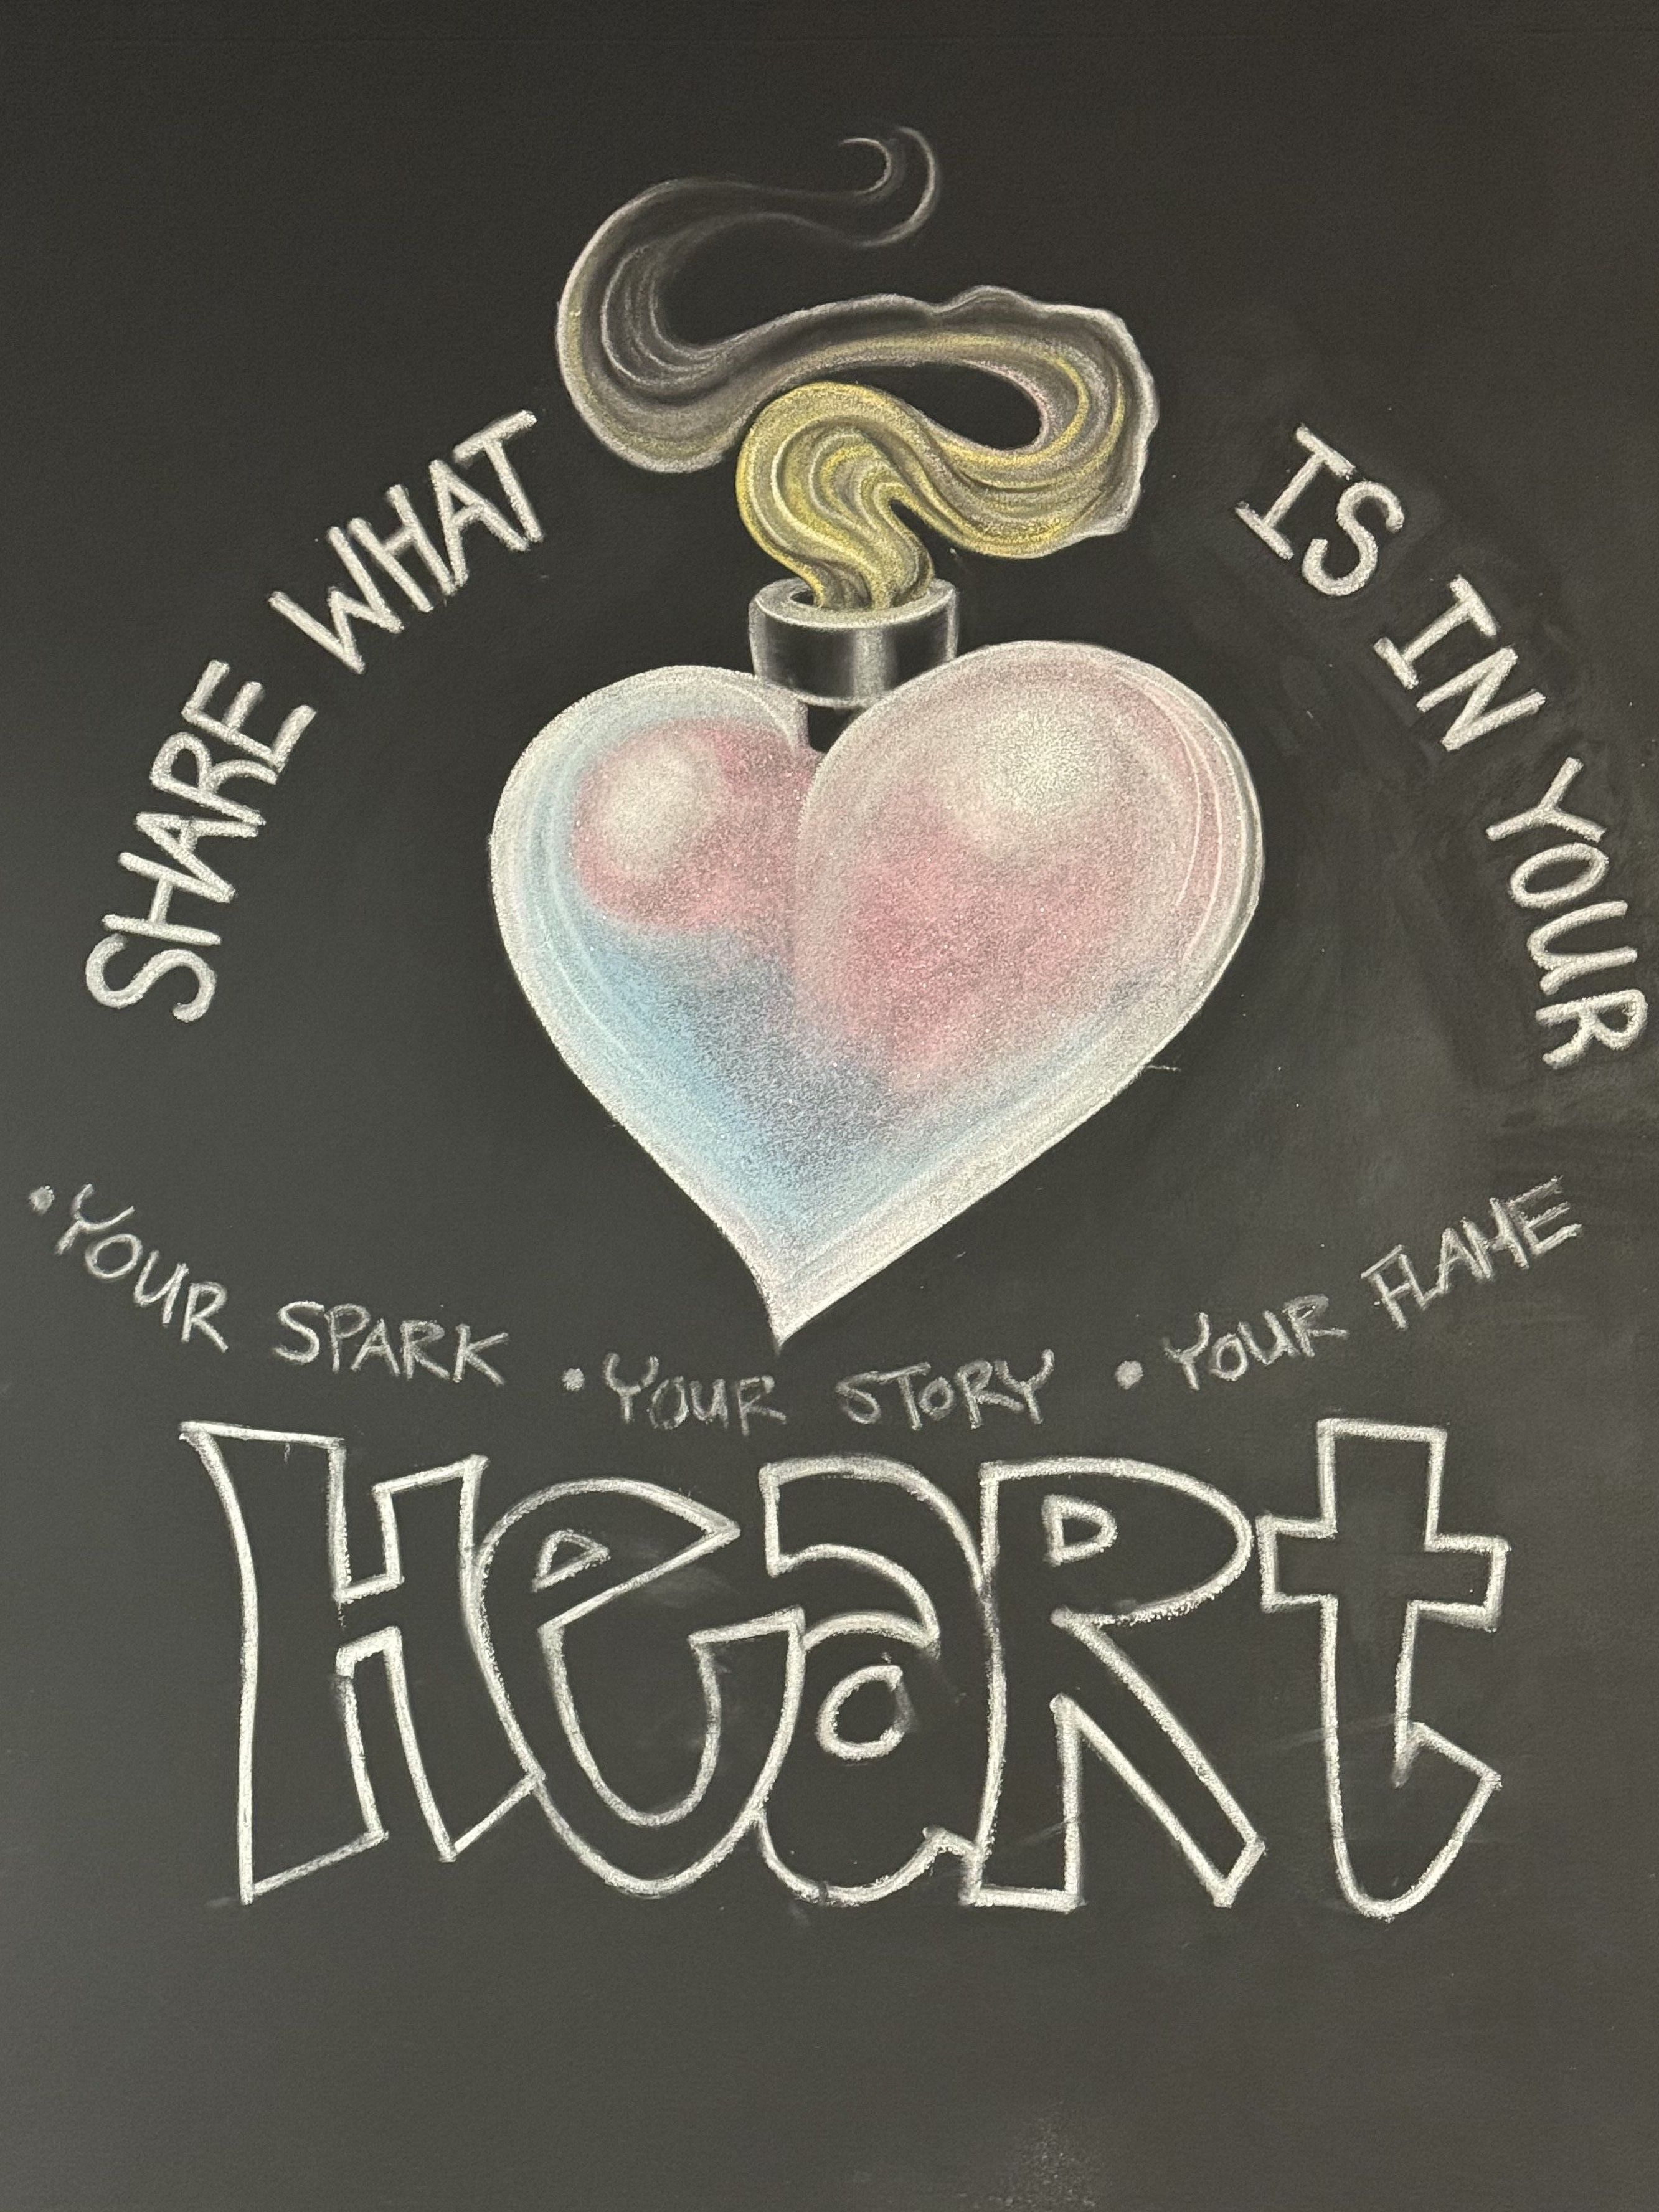 SHARE WHAT IS IN YOUR
• YOUR SPARK • YOUR STORY • YOUR FLAME
HeaRt